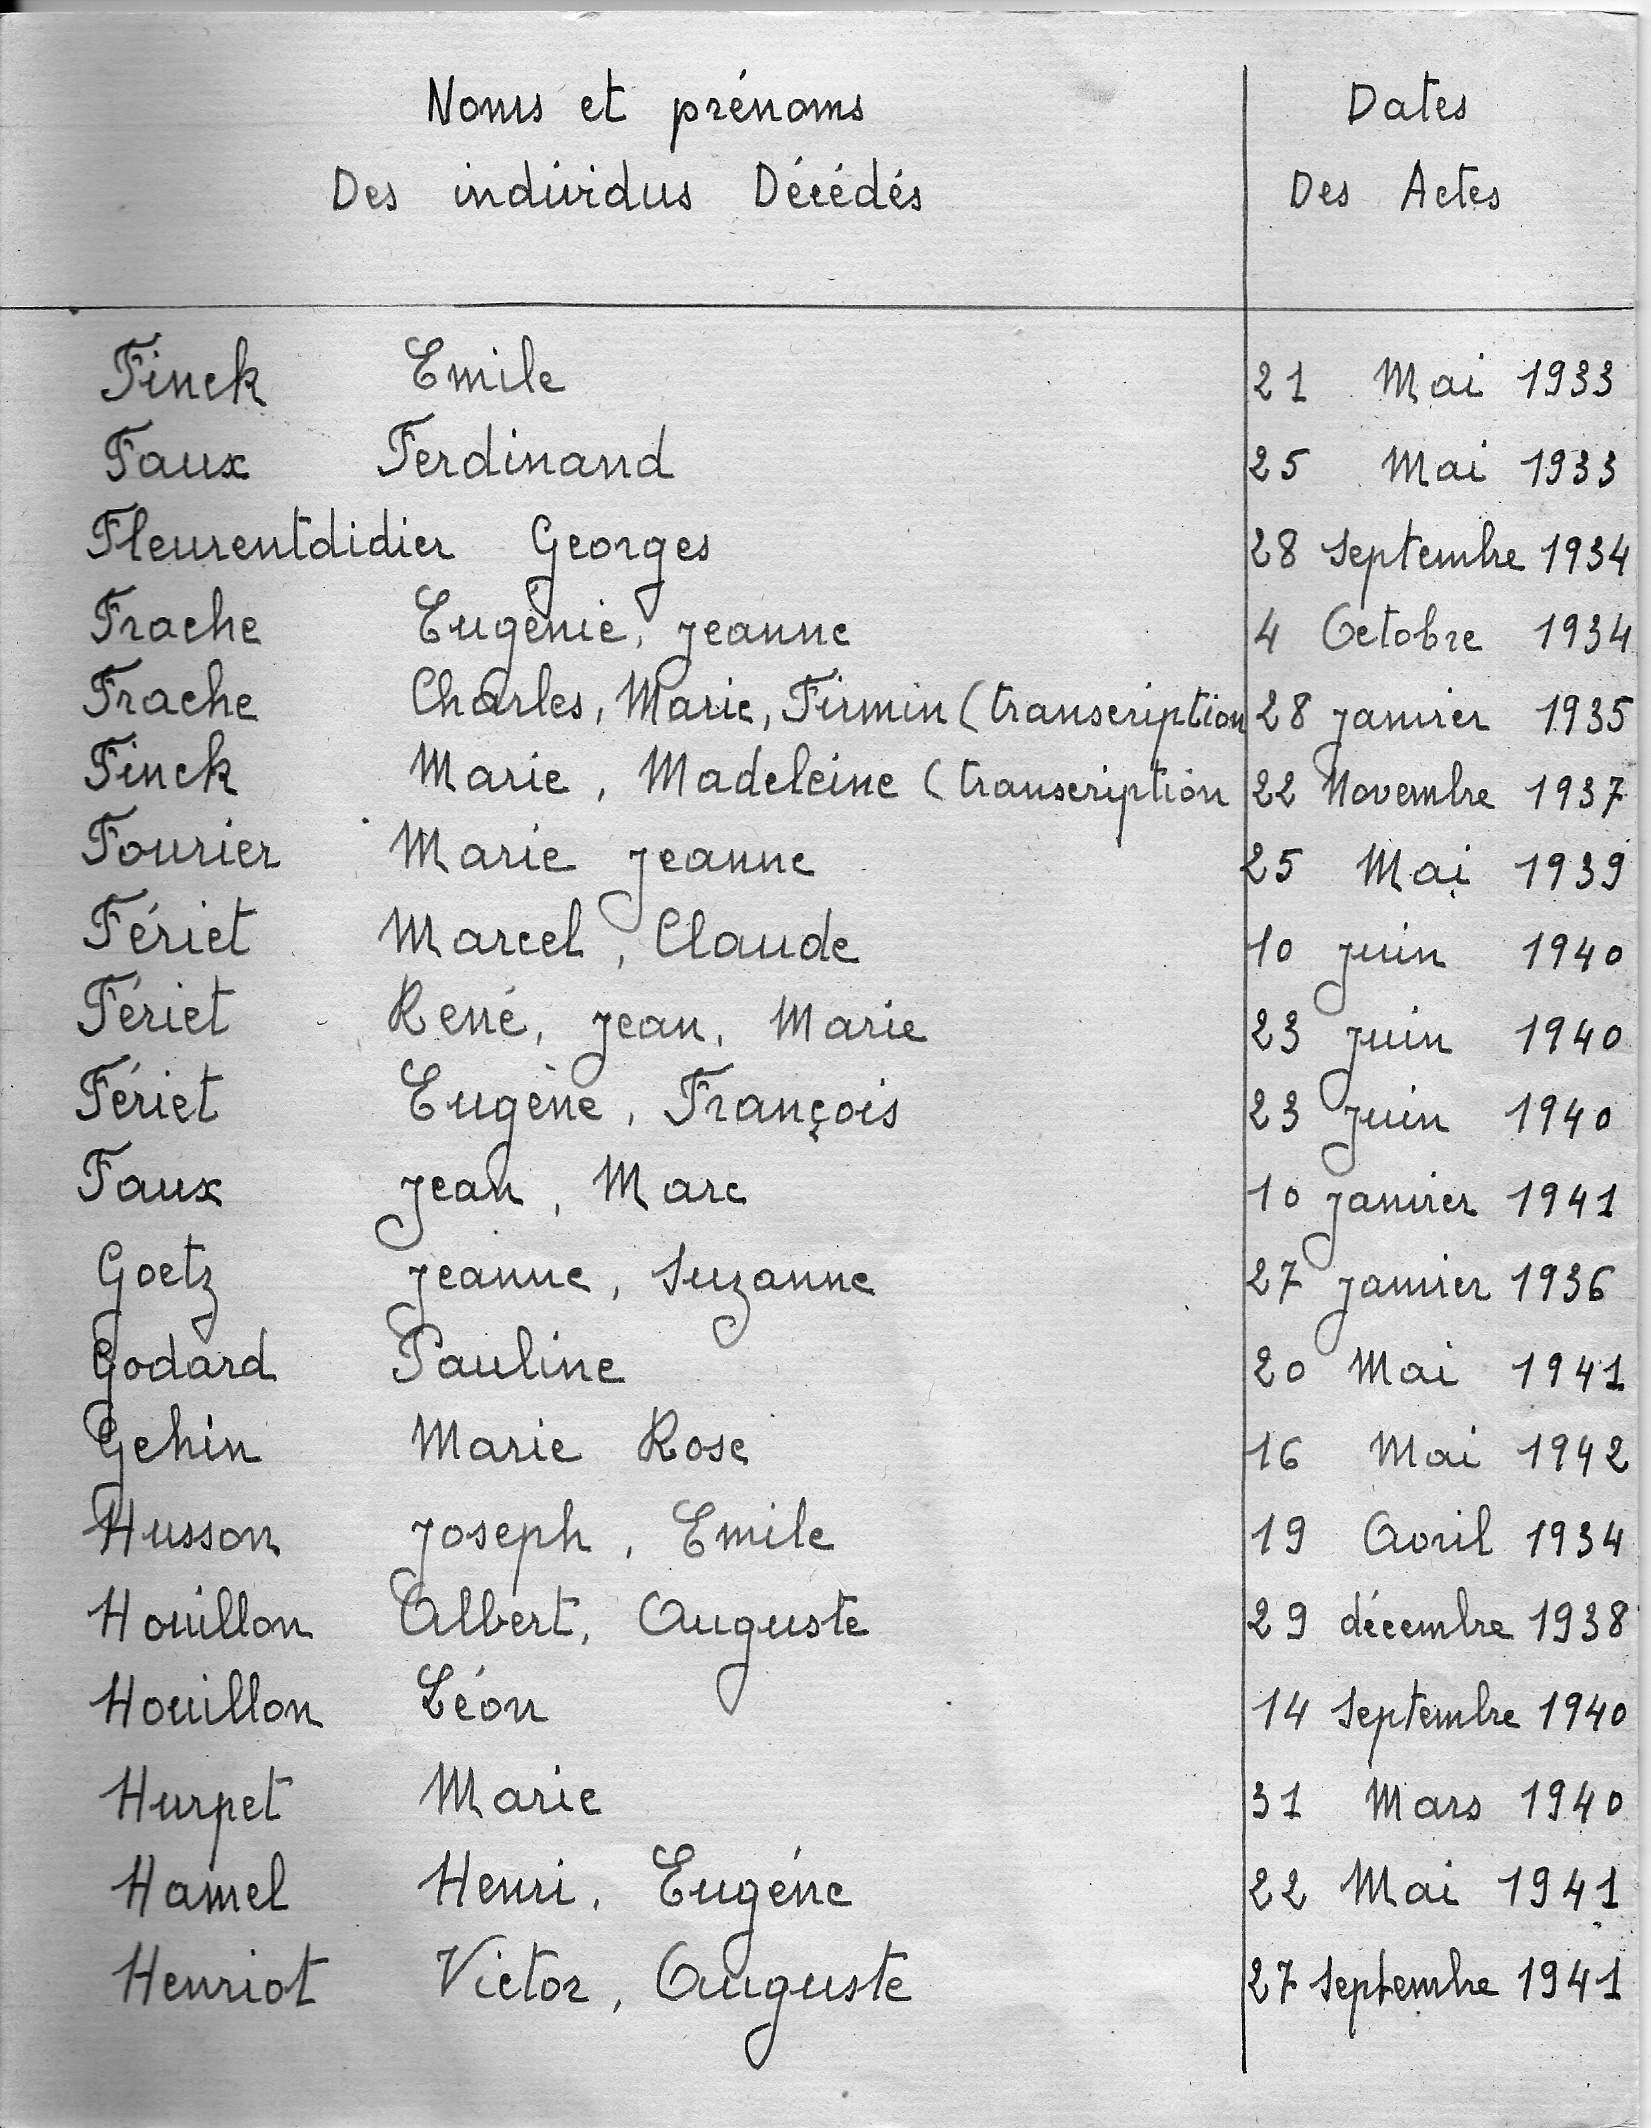 Noms et prénoms Dates
Des individus Décédés Des Actes
Finck Emile 21 Mai 1933
Faux Ferdinand 25 Mai 1933
Fleurentdidier Georges 28 Septembre 1934
Frache Eugènie, Jeanne 4 Octobre 1934
Frache Charles, Marie, Firmin (transcription 28 Janvier 1935
Finck Marie, Madeleine (transcription 22 Novembre 1937
Fourier Marie Jeanne 25 Mai 1939
Fériet Marcel, Claude 10 Juin 1940
Fériet René, Jean, Marie 23 Juin 1940
Fériet Eugène, François 23 Juin 1940
Faux Jean, Marc 10 Janvier 1941
Goetz Jeanne, Suzanne 27 Janvier 1936
Godard Pauline 20 Mai 1941
Gehin Marie Rose 16 Mai 1942
Husson Joseph, Emile 19 Avril 1934
Houillon Albert, Auguste 29 décembre 1938
Houillon Léon 14 Septembre 1940
Hurpet Marie 31 Mars 1940
Hamel Henri, Eugéne 22 Mai 1941
Henriot Victor, Auguste 27 Septembre 1941